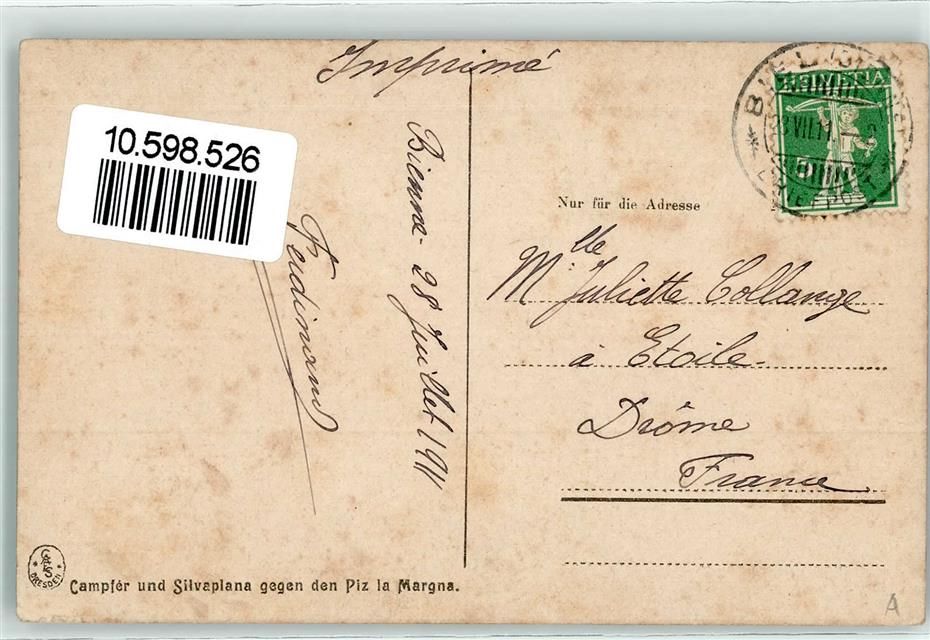 Imprimé
10.598.526
Bienne - 28 Juillet 1911
Ferdinand
HELVETIA
5
VII.11
Nur für die Adresse
Mlle Juliette Collange
à Etoile -
Drôme
France
DRESDEN
Campfér und Silvaplana gegen den Piz la Margna.
A